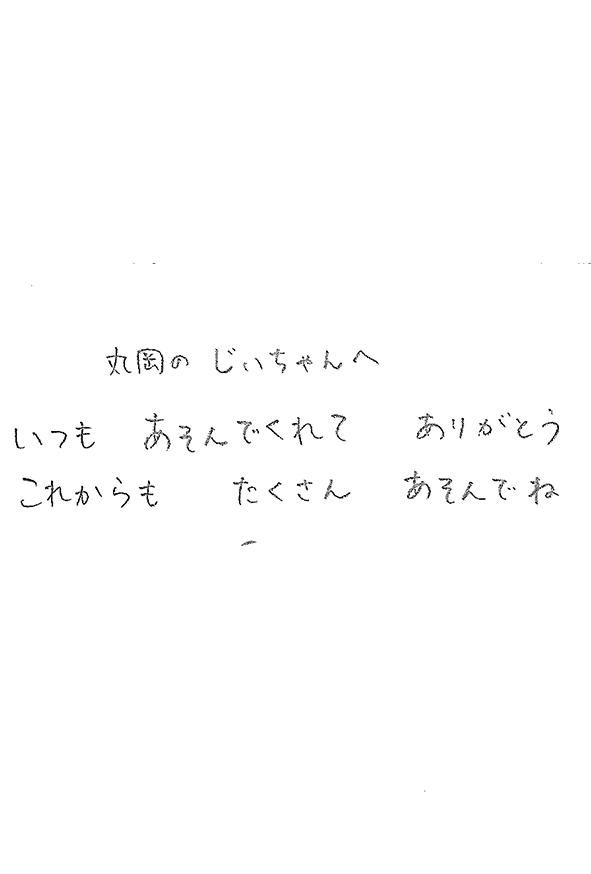 丸岡の じぃちゃんへ
いつも あそんでくれて ありがとう
これからも たくさん あそんでね